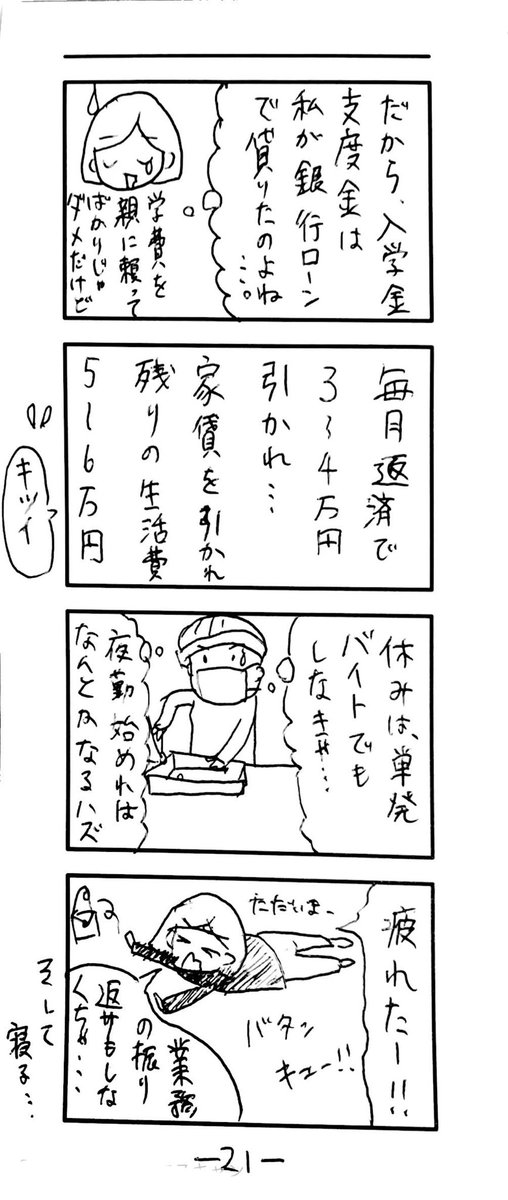 だから、入学金
支度金は
私が銀行ローン
で借りたのよね
……。
学費を
親に頼って
ばかりじゃ
ダメだけど
毎月返済で
3〜4万円
引かれ…
家賃を引かれ
残りの生活費
5〜6万円
キツイッ
休みは、単発
バイトでも
しなきゃ…
夜勤始めれば
なんとかなるハズ
疲れたー!!
ただいまー
バタン
キュー!!
業務
の振り
返りもしな
くちゃ…
そして
寝る…
—21—